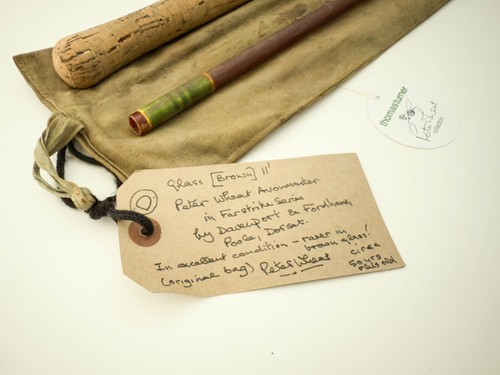 Glass [Brown] 11'
Peter Wheat Avonmaster
in Farstrike Series
by Davenport & Fordham,
Poole, Dorset.
In excellent condition – rarer in
brown glass!
(original bag) Peter Wheat
circa
50 yrs
old
thomas turner
Peter Wheat
collection